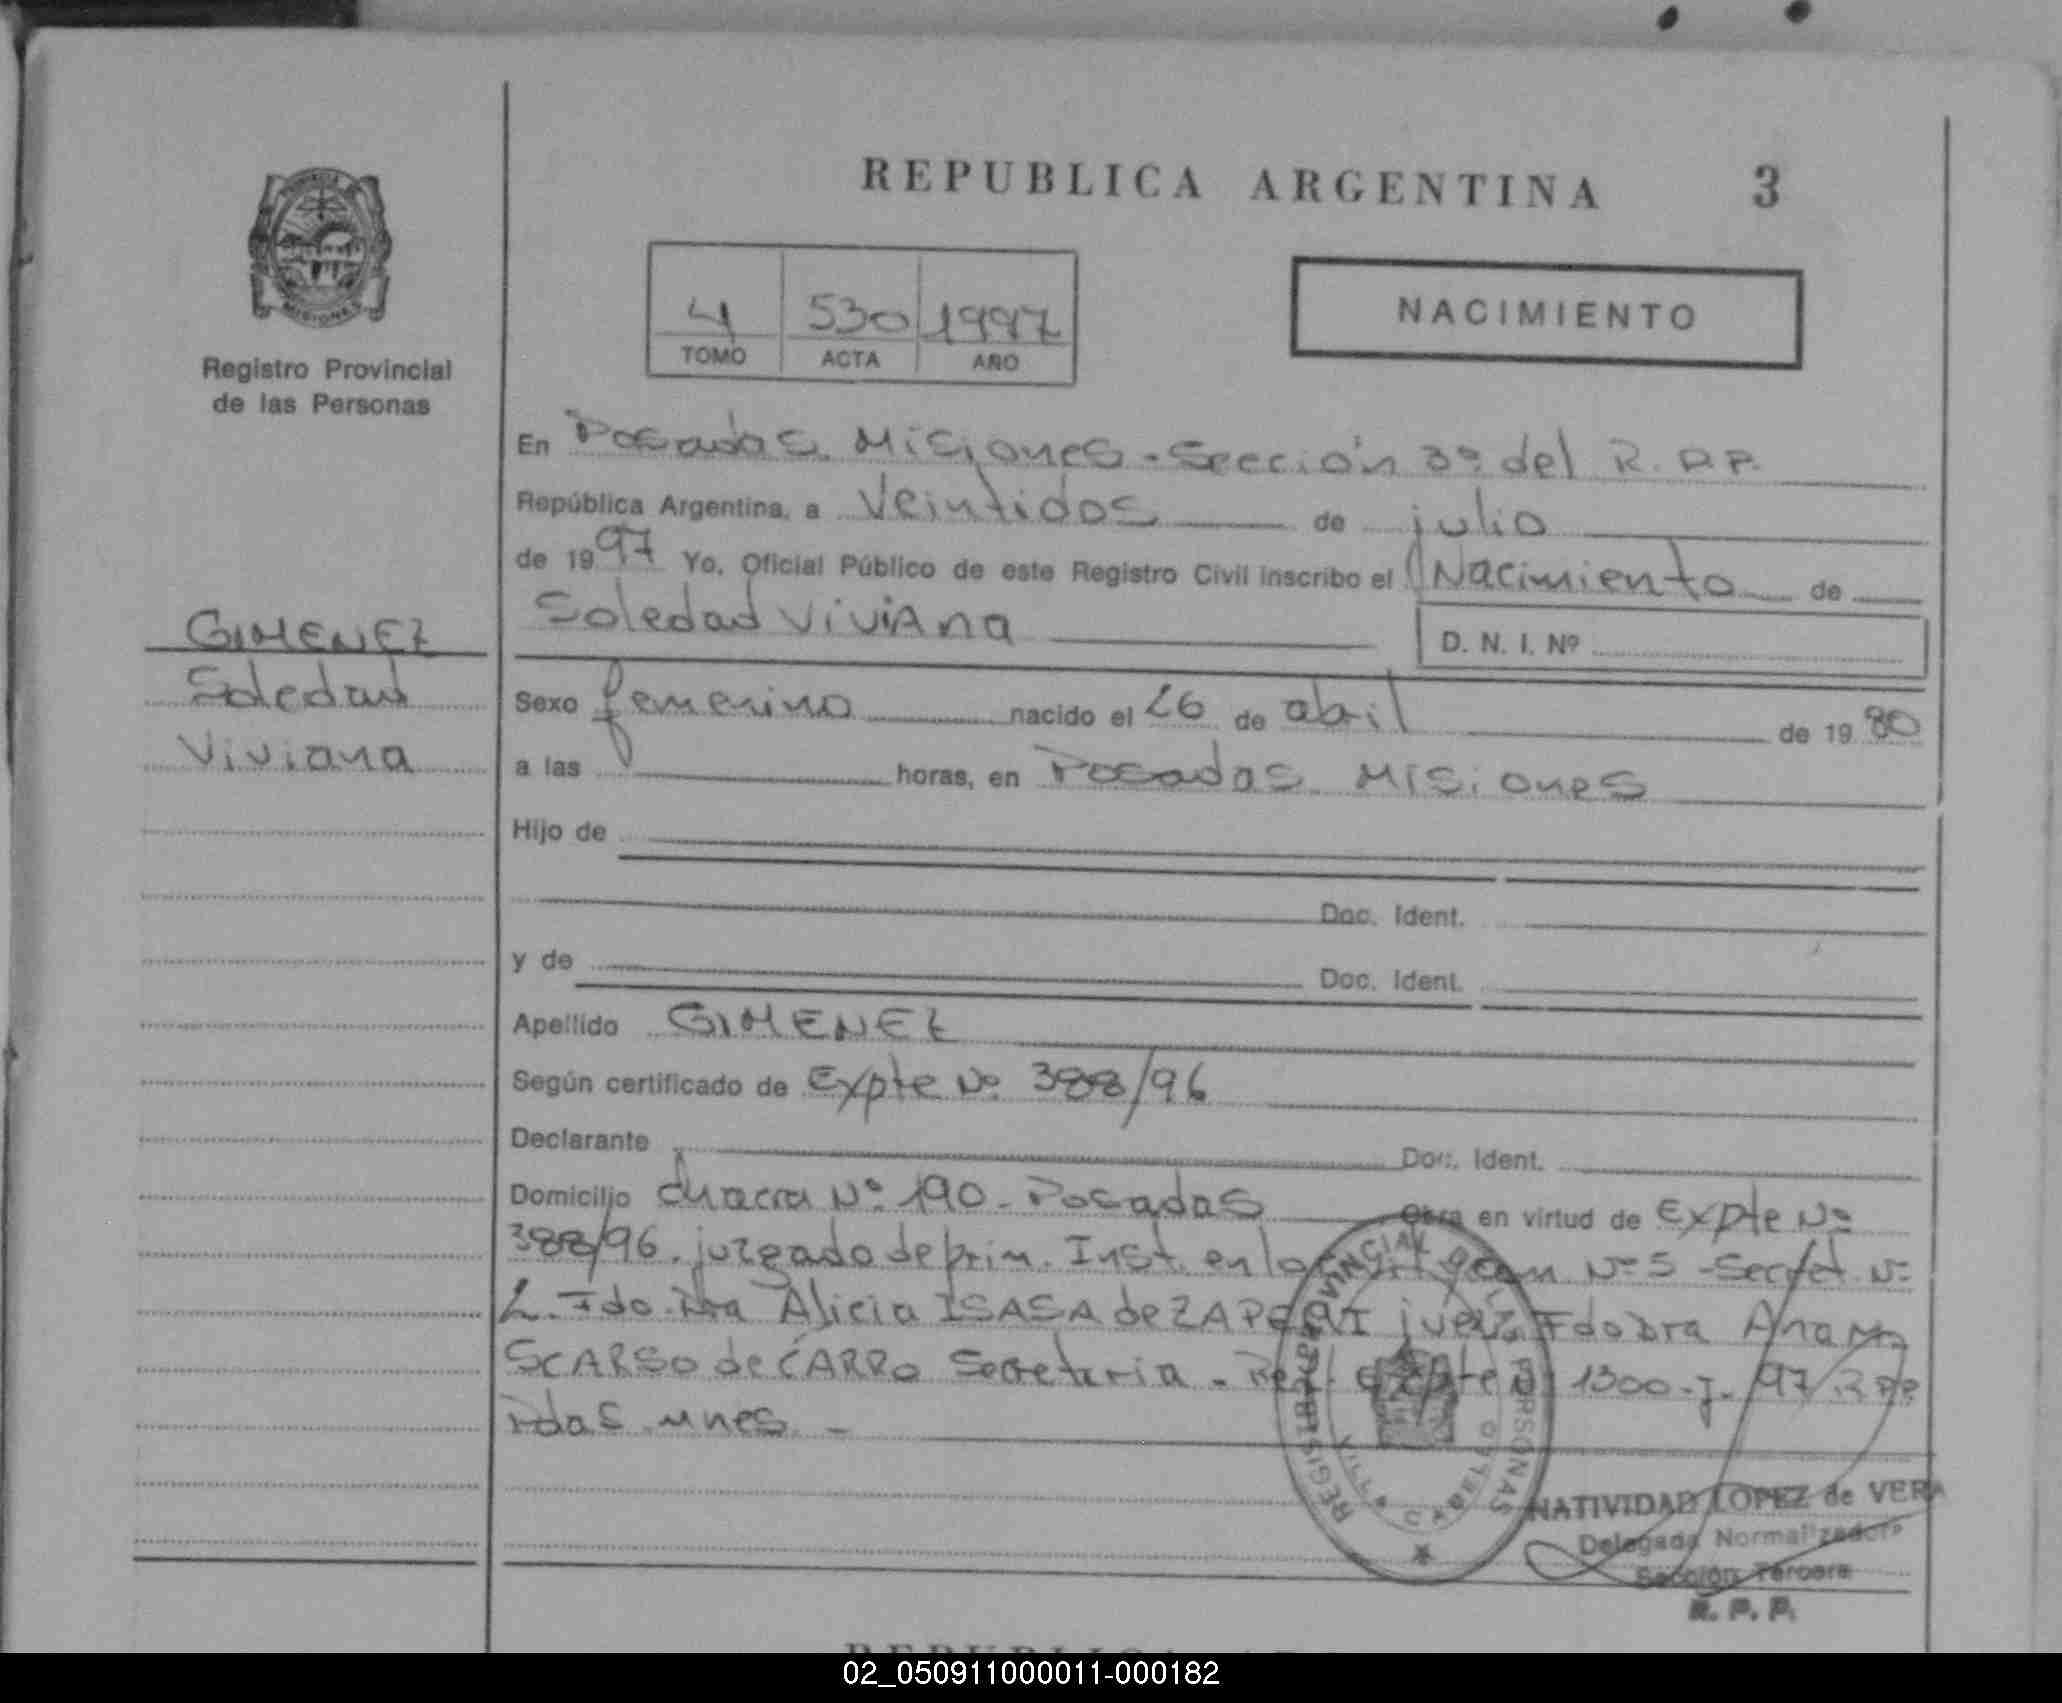 REPUBLICA ARGENTINA 3
PROVINCIA DE
MISIONES
Registro Provincial
de las Personas
4 530 1997
TOMO ACTA AÑO
NACIMIENTO
En Posadas. Misiones - Sección 3º del R.P.P.
República Argentina, a Veintidos de julio
de 1997 Yo, Oficial Público de este Registro Civil inscribo el Nacimiento de
Soledad Viviana
D. N. I. Nº
GIMENEZ
Soledad
Viviana
Sexo femenino nacido el 26 de abril de 1980
a las horas, en Posadas. Misiones
Hijo de
Doc. Ident.
y de Doc. Ident.
Apellido GIMENEZ
Según certificado de Expte Nº 388/96
Declarante Doc. Ident.
Domicilio Chacra Nº 190 - Posadas Obra en virtud de Expte Nº
388/96. juzgado de prim. Inst. en lo Civil y Com Nº 5 - Secret. Nº
2. Fdo. Dra Alicia ISASA de juez. Fdo Dra Ana M.
SCARSO de CARRO Secretaria - Expte Nº 1300-J-97 R.P.P.
Pdas. Mnes. -
REGISTRO PROVINCIAL DE LAS PERSONAS
VILLA CABELLO
NATIVIDAD LOPEZ de VERA
Delegada Normalizadora
Sección Tercera
R. P. P.
02_050911000011-000182